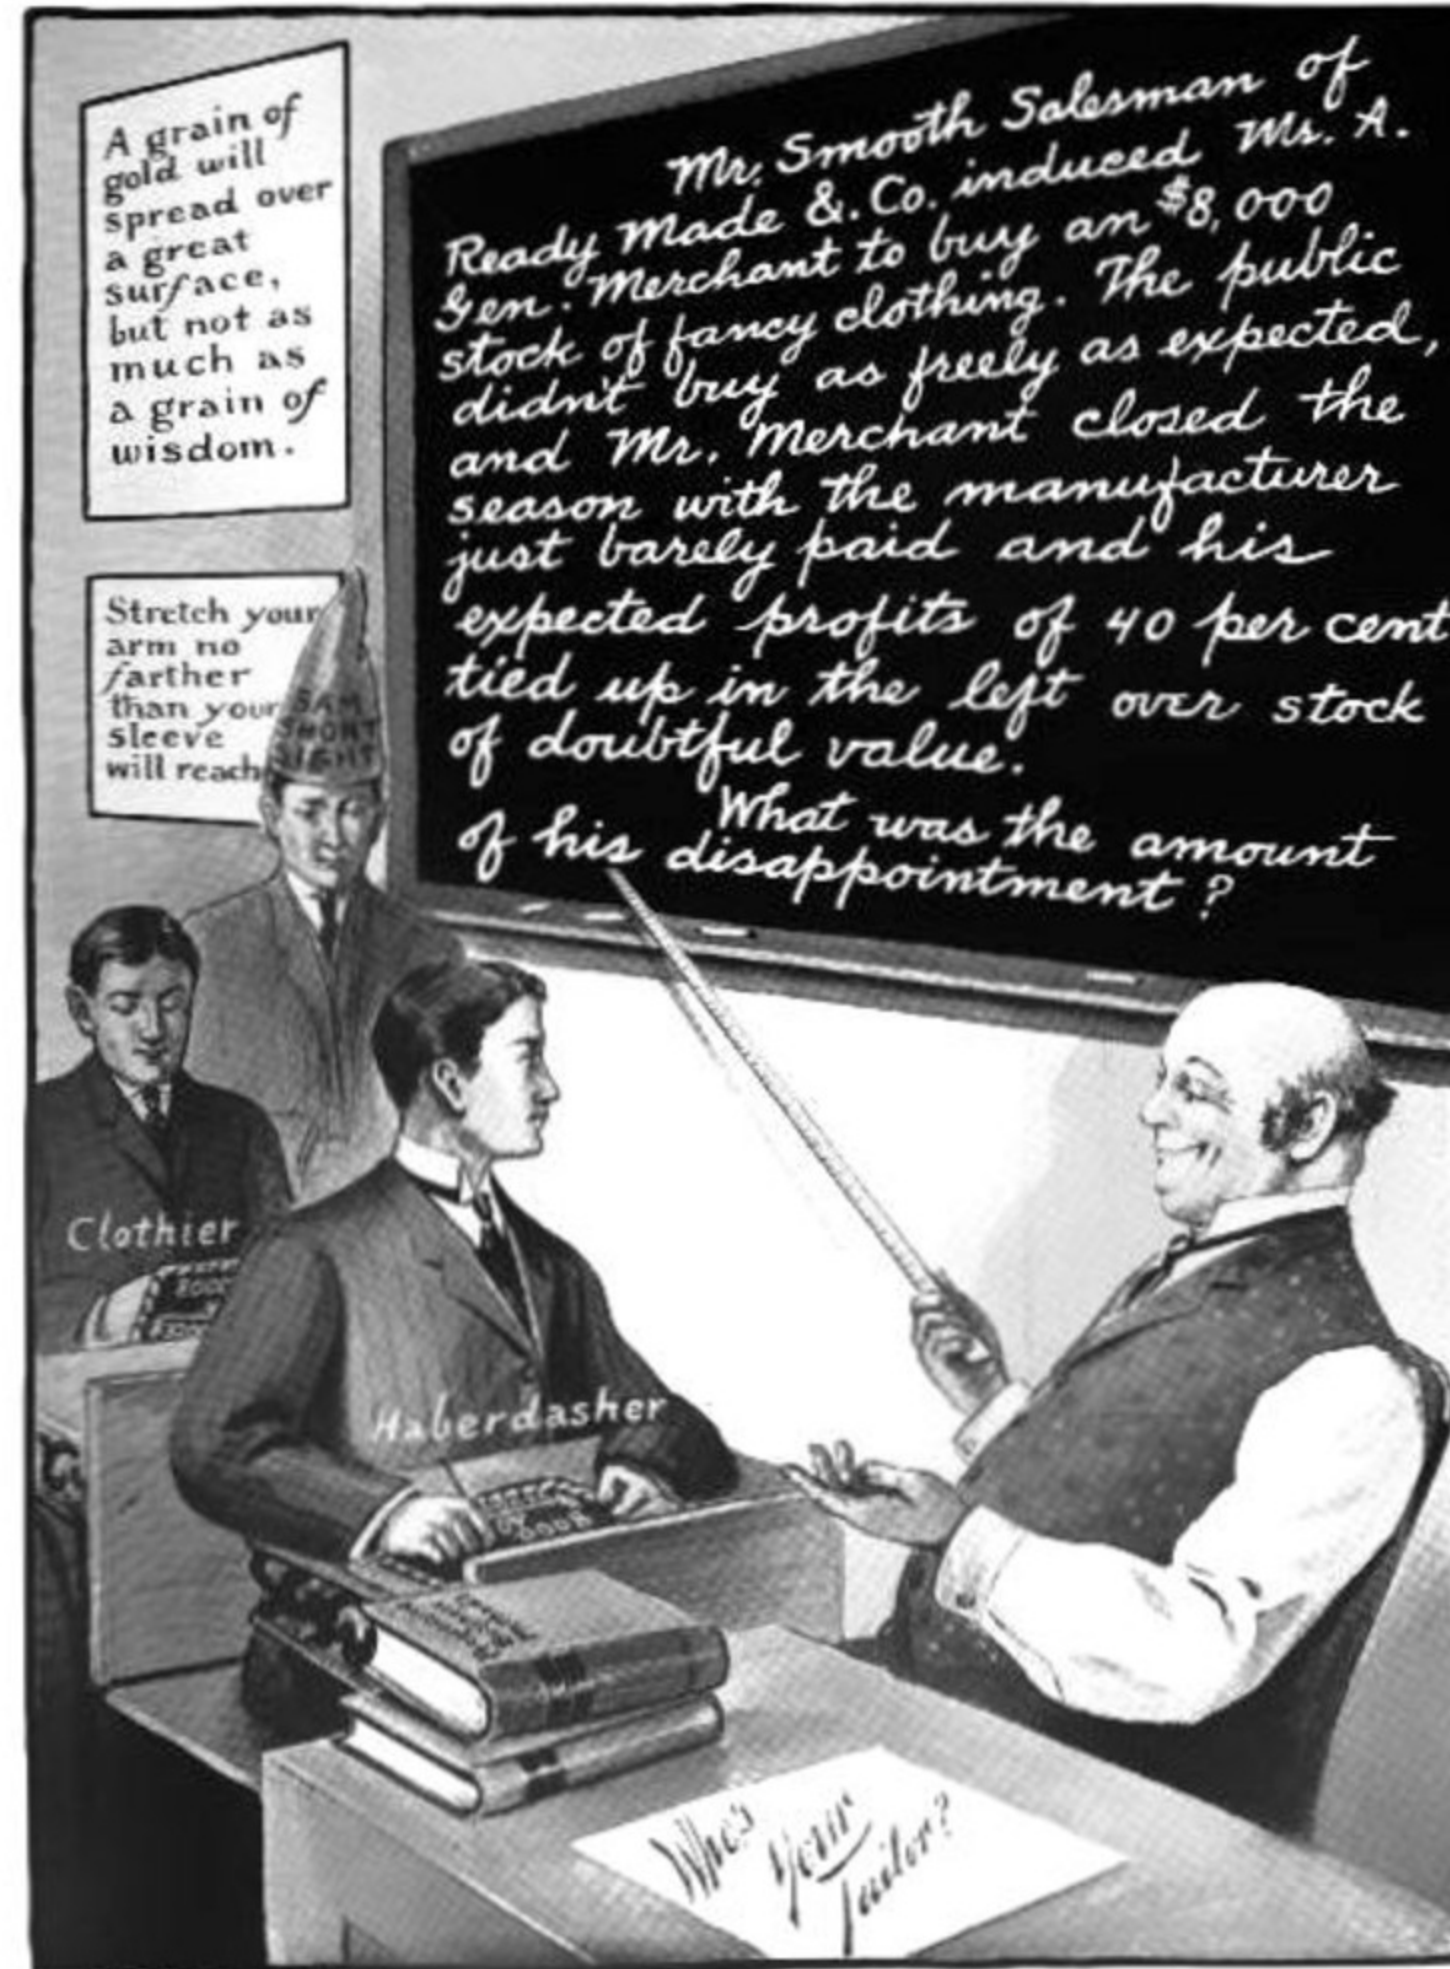 A grain of
gold will
spread over
a great
surface,
but not as
much as
a grain of
wisdom.
Stretch your
arm no
farther
than your
sleeve
will reach
SAM
SHORT
SIGHT
Mr. Smooth Salesman of
Ready Made &. Co. induced Mr. A.
Gen. Merchant to buy an $8,000
stock of fancy clothing. The public
didn't buy as freely as expected,
and Mr. Merchant closed the
season with the manufacturer
just barely paid and his
expected profits of 40 per cent
tied up in the left over stock
of doubtful value.
What was the amount
of his disappointment?
Clothier
Haberdasher
Who's
Your
Tailor?